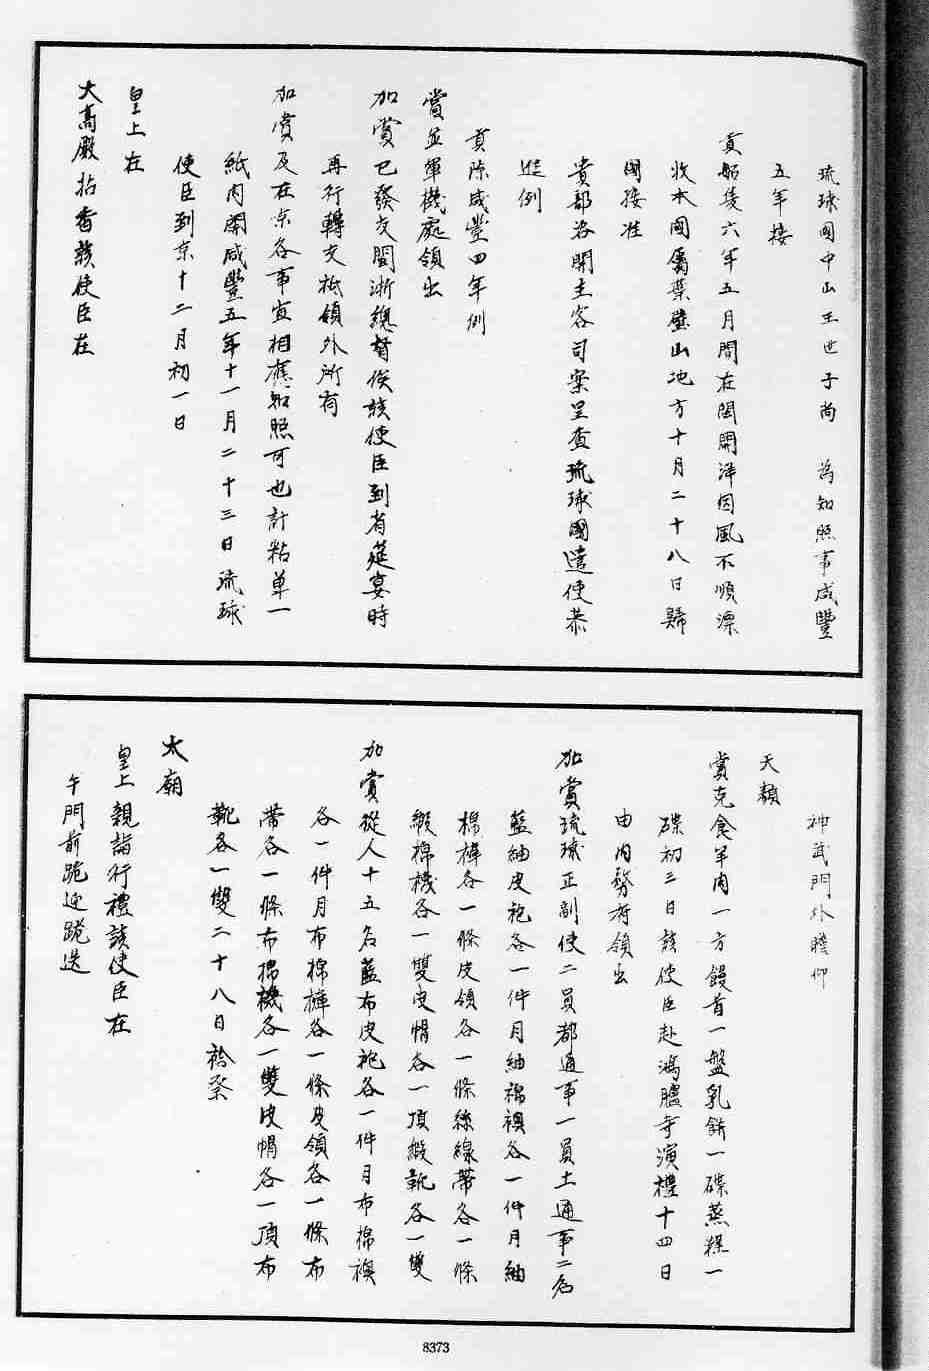 琉球國中山王世子尚　為知照事咸豐
五年接
貢船後六年五月間在閩開洋因風不順漂
收本國屬葉壁山地方十月二十八日歸
國接准
貴部咨開主客司案呈查琉球國遣使恭
進例
貢除咸豐四年例
賞並軍機處領出
加賞已發交閩浙總督俟該使臣到省筵宴時
再行轉交祗領外所有
加賞及在京各事宜相應知照可也計粘單一
紙內開咸豐五年十一月二十三日琉球
使臣到京十二月初一日
皇上在
大高殿拈香該使臣在
神武門外瞻仰
天顏
賞克食羊肉一方饅首一盤乳餅一碟蒸糕一
碟初三日該使臣赴鴻臚寺演禮十四日
由內務府領出
加賞琉球正副使二員都通事一員土通事二名
藍紬皮袍各一件月紬棉襖各一件月紬
棉褲各一條皮領各一條絲線帶各一條
緞棉襪各一雙皮帽各一頂緞靴各一雙
加賞從人十五名藍布皮袍各一件月布棉襖
各一件月布棉褲各一條皮領各一條布
帶各一條布棉襪各一雙皮帽各一頂布
靴各一雙二十八日祫祭
太廟
皇上親詣行禮該使臣在
午門前跪迎跪送
8373